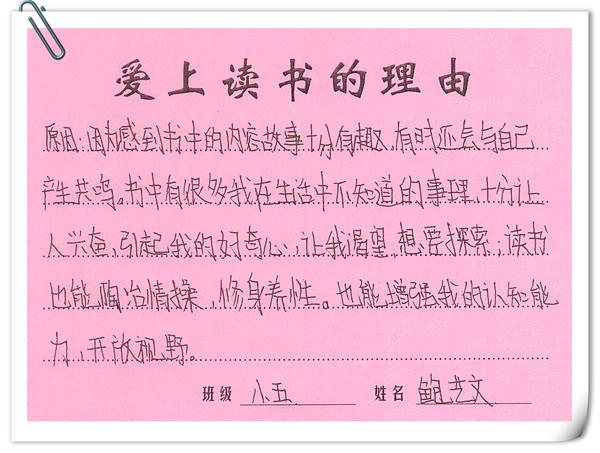 爱上读书的理由
原因:因为感到书中的内容故事十分有趣,有时还会与自己
产生共鸣。书中有很多我在生活中不知道的事理,十分让
人兴奋,引起我的好奇心,让我渴望、想要探索;读书
也能陶冶情操,修身养性。也能增强我的认知能
力,开放视野。
班级 小五 姓名 鲍艺文